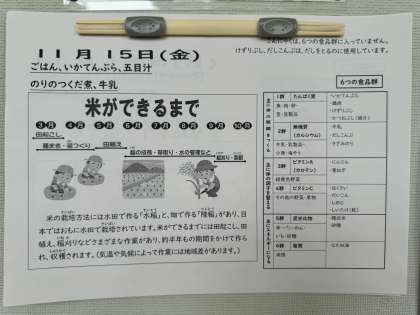 11月15日(金)
ごはん、いかてんぷら、五目汁
のりのつくだ煮、牛乳
米ができるまで
3月 4月 5月 6月 7月 8月 9月 10月
田起こし
種まき・苗づくり
田植え
稲の成長・草取り・水の管理など
稲刈り・脱穀
米の栽培方法には水田で作る「水稲」と、畑で作る「陸稲」があり、日
本ではおもに水田で栽培されています。米ができるまでには田起こし、田
植え、稲刈りなどさまざまな作業があり、約半年もの期間をかけて作ら
れ、収穫されます。(気温や気候によって作業には地域差があります。)
は、6つの食品群に入っていません。
けずりぶし、だしこんぶは、だしをとるのに使用しています。
6つの食品群
1群 たんぱく質
魚・肉・卵・
豆・豆製品
・いかてんぷら
・鶏肉
・けずりぶし
2群 無機質
(カルシウム)
牛乳・乳製品・
小魚・海そう
・牛乳
・だしこんぶ
・きざみのり
3群 ビタミンA
(カロテン)
緑黄色野菜
・にんじん
4群 ビタミンC
その他の野菜・果物
・ごぼう
・だいこん
・しめじ
5群 炭水化物
米・パン・めん・
いも・砂糖
・精白米
・砂糖
6群 脂質
油脂
・なたね油